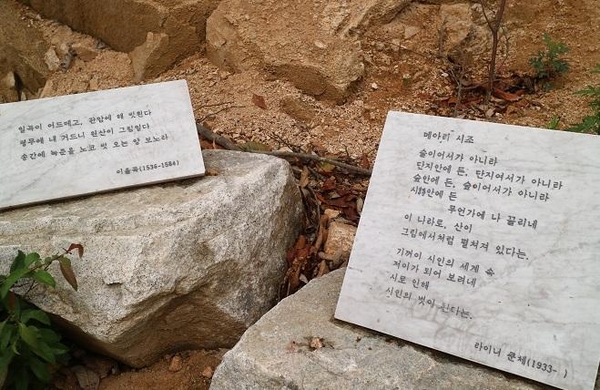 일곡이 어드메고, 관암에 해 빗쵠다
평무에 내 거드니 원산이 그림일다
송간에 녹준을 노코 벗 오는 양 보노라
이율곡(1536-1584)
메아리 시조
숲이어서가 아니라
단지안에 든, 단지어서가 아니라
숲안에 든, 숲이어서가 아니라
시詩안에 든
무언가에 나 끌리네
이 나라로, 산이
그림에서처럼 펼쳐져 있다는,
기꺼이 시인의 세계 속
저이가 되어 보려네
시로 인해
시인의 벗이 된다는.
라이너 쿤체(1933- )